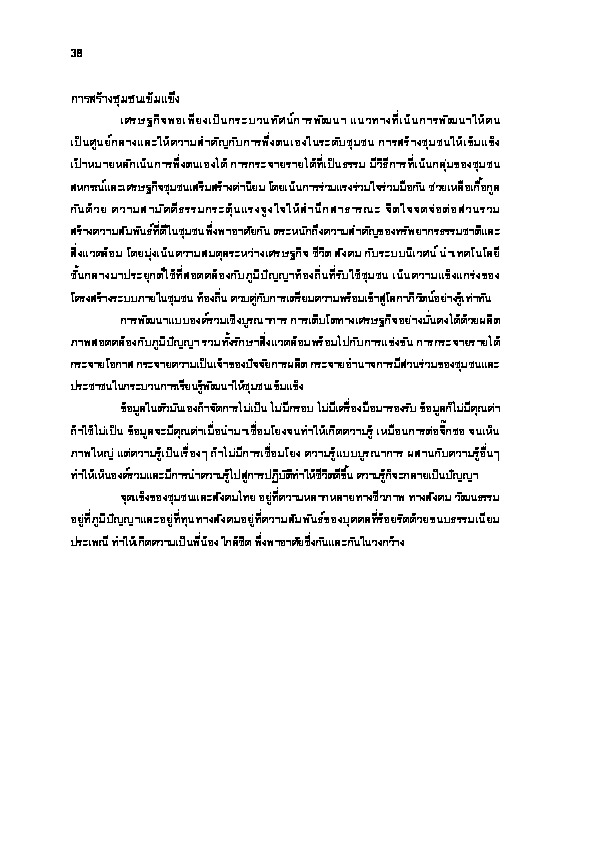 38
การสร้างชุมชนเข้มแข็ง
เศรษฐกิจพอเพียงเป็นกระบวนทัศน์การพัฒนา แนวทางที่เน้นการพัฒนาให้คน
เป็นศูนย์กลางและให้ความสำคัญกับการพึ่งตนเองในระดับชุมชน การสร้างชุมชนให้เข้มแข็ง
เป้าหมายหลักเน้นการพึ่งตนเองได้ การกระจายรายได้ที่เป็นธรรม มีวิธีการที่เน้นกลุ่มของชุมชน
สหกรณ์และเศรษฐกิจชุมชนเสริมสร้างค่านิยม โดยเน้นการร่วมแรงร่วมใจร่วมมือกัน ช่วยเหลือเกื้อกูล
กันด้วย ความสามัคคีธรรมกระตุ้นแรงจูงใจให้สำนึกสาธารณะ จิตใจจดจ่อต่อส่วนรวม
สร้างความสัมพันธ์ที่ดีในชุมชนพึ่งพาอาศัยกัน ตระหนักถึงความสำคัญของทรัพยากรธรรมชาติและ
สิ่งแวดล้อม โดยมุ่งเน้นความสมดุลระหว่างเศรษฐกิจ ชีวิต สังคม กับระบบนิเวศน์ นำเทคโนโลยี
ชั้นกลางมาประยุกต์ใช้ที่สอดคล้องกับภูมิปัญญาท้องถิ่นที่รับใช้ชุมชน เน้นความแข็งแกร่งของ
โครงสร้างระบบภายในชุมชน ท้องถิ่น ควบคู่กับการเตรียมความพร้อมเข้าสู่โลกาภิวัตน์อย่างรู้เท่าทัน
การพัฒนาแบบองค์รวมเชิงบูรณาการ การเติบโตทางเศรษฐกิจอย่างมั่นคงได้ด้วยผลิต
ภาพสอดคล้องกับภูมิปัญญา รวมทั้งรักษาสิ่งแวดล้อมพร้อมไปกับการแข่งขัน การกระจายรายได้
กระจายโอกาส กระจายความเป็นเจ้าของปัจจัยการผลิต กระจายอำนาจการมีส่วนร่วมของชุมชนและ
ประชาชนในกระบวนการเรียนรู้พัฒนาให้ชุมชนเข้มแข็ง
ข้อมูลในตัวมันเองถ้าจัดการไม่เป็น ไม่มีกรอบ ไม่มีเครื่องมือมารองรับ ข้อมูลก็ไม่มีคุณค่า
ถ้าใช้ไม่เป็น ข้อมูลจะมีคุณค่าเมื่อนำมาเชื่อมโยงจนทำให้เกิดความรู้ เหมือนการต่อจิ๊กซอ จนเห็น
ภาพใหญ่ แต่ความรู้เป็นเรื่องๆ ถ้าไม่มีการเชื่อมโยง ความรู้แบบบูรณาการ ผสานกับความรู้อื่นๆ
ทำให้เห็นองค์รวมและมีการนำความรู้ไปสู่การปฏิบัติทำให้ชีวิตดีขึ้น ความรู้ก็จะกลายเป็นปัญญา
จุดแข็งของชุมชนและสังคมไทย อยู่ที่ความหลากหลายทางชีวภาพ ทางสังคม วัฒนธรรม
อยู่ที่ภูมิปัญญาและอยู่ที่ทุนทางสังคมอยู่ที่ความสัมพันธ์ของบุคคลที่ร้อยรัดด้วยขนบธรรมเนียม
ประเพณี ทำให้เกิดความเป็นพี่น้อง ใกล้ชิด พึ่งพาอาศัยซึ่งกันและกันในวงกว้าง